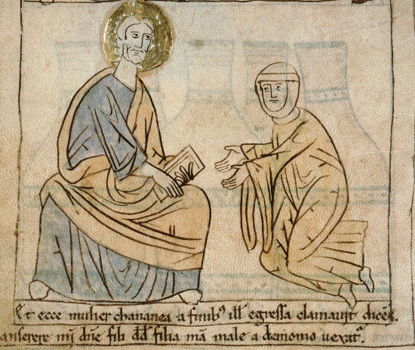 Et ecce mulier chananea a finib⁹ ill̄ egressa clamauit dicēs
miserere m̄ dn̄e fili dd̄ filia m̄a male a demonio uexat᷑.